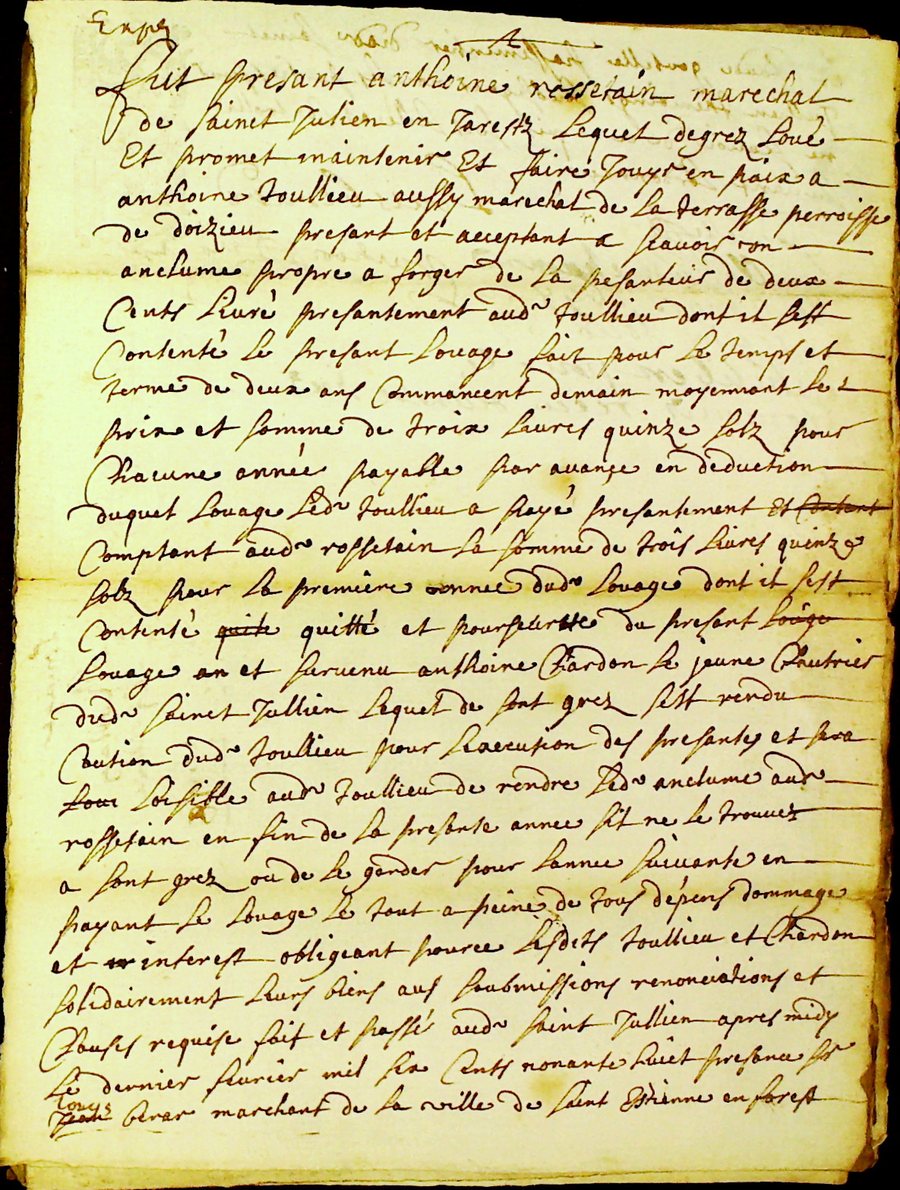 Expé
Fut presant anthoine rossetain marechal
de sainct Jullien en Jarestz Lequel degrez Loué
Et promet maintenir Et faire Jouyr en paix a
anthoine toullieu aussy marechal de La terrasse perroisse
de doizieu presant et acceptant a scavoir ton
anclume propre a forger de La pesanteur de deux
Cents Livre presantement audr toullieu dont il sest
Contenté Le presant Louage fait pour Le temps et
terme de deux ans Commancent demain moyennant Le
prix et somme de troix Livres quinze solz pour
Chacune année payable par avançe en deduction
duquel Louage Ledr toullieu a payé presantement Et Contant
Comptant audr rossetain La somme de trois Livres quinze
solz pour La première année dudr Louage dont il sest
Contenté quite quitté et pour du presant Loüge
Louage an et survenu anthoine Chardon Le jeune
dudr sainct Jullien Lequel de sont grez sest rendu
Caution dudr toullieu pour Lexecution des presantes et sera
Loisible audr toullieu de rendre Ledr anclume audr
rossetain en fin de La presante annee sil ne Le trouvez
a sont grez ou de Le garder pour Lannee suivante en
payant Le Louage Le tout a peine de tous dépens dommage
et interest obligeant pource Lesdits toullieu et Chardon
solidairement Leurs biens aus soubmissions renonciations et
Clauses requise fait et passé audr saint Jullien apres midy
Le dernier fevrier mil six Cents nonante huict presance sr
Louys
Jean berar marchant de La ville de saint Estienne en forest